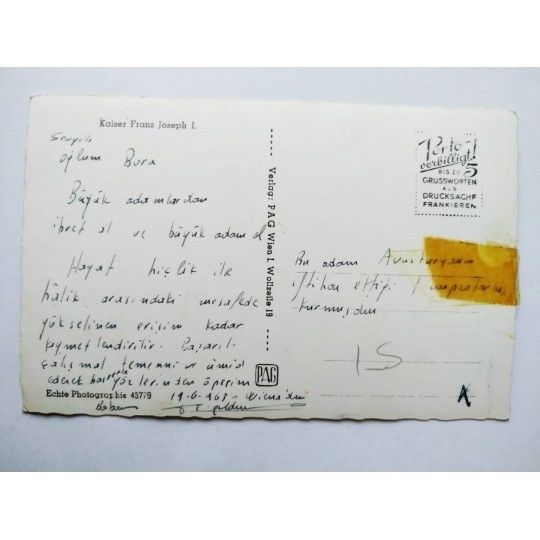 Kaiser Franz Joseph I.
Sevgili
oğlum Bora
Büyük adamlardan
ibret al ve büyük adam ol
Hayat hiçlik ile
hâlik arasındaki mesafede
yükselinen erişim kadar
kıymetlendirilir. Başarılı
çalışma temenni ve ümid
ederek hasretle gözlerinden öperim
Echte Photographie 45779
19-6-963 - Viena'dan
Baban
Verlag: PAG Wien I. Wollzeile 19
PAG
Porto-
verbilligt!
BIS ZU 5
GRUSSWORTEN
ALS
DRUCKSACHE
FRANKIEREN
Bu adam Avusturyanın
iftihar ettiği Imparatoru
turmuşdur
15
A